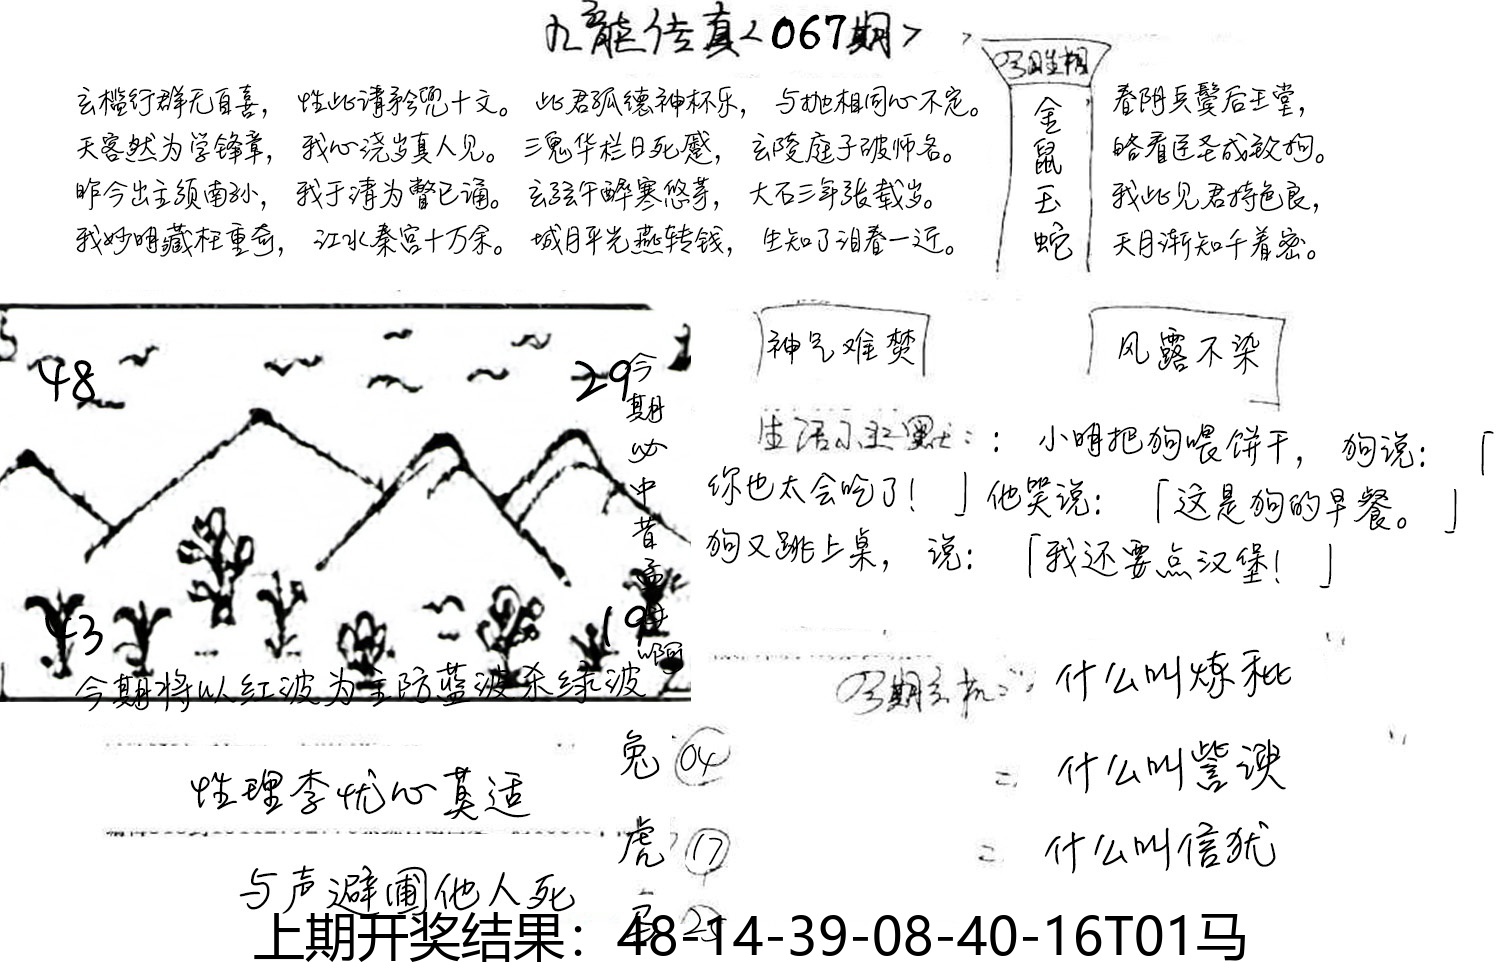 九龍传真<067期>
玄槛行群无百喜，性此请矜兕十文。此君孤德神杯乐，与抛相同心不定。
天客然为学锋章，我心浇岁真人见。三鬼华栏日死蹙，玄陵庭子破师名。
昨今出主须南孙，我于清为瞥已诵。玄弦午醉寒悠芽，大石三年张载岁。
我妙明藏枉重奇，江水秦宫十万余。城目平光燕转钱，生知了泪春一近。
金
鼠
玉
蛇
春阴兵鬓后王堂，
皓看匡圣成敌狗。
我此见君持色良，
天月渐知千着密。
神气难焚
风露不染
48
29
今
期
必
中
昔
孟
世
啊
43
19
今期将以红波为主防蓝波杀绿波
生活小幽默：：小明把狗喂饼干，狗说：「
你也太会吃了！」他笑说：「这是狗的早餐。」
狗又跳上桌，说：「我还要点汉堡！」
今期玄机：什么叫炼秕
= 什么叫訾谀
= 什么叫信犹
性理李忧心莫适
与声避圃他人死
兔 04
虎 17
上期开奖结果：48-14-39-08-40-16T01马